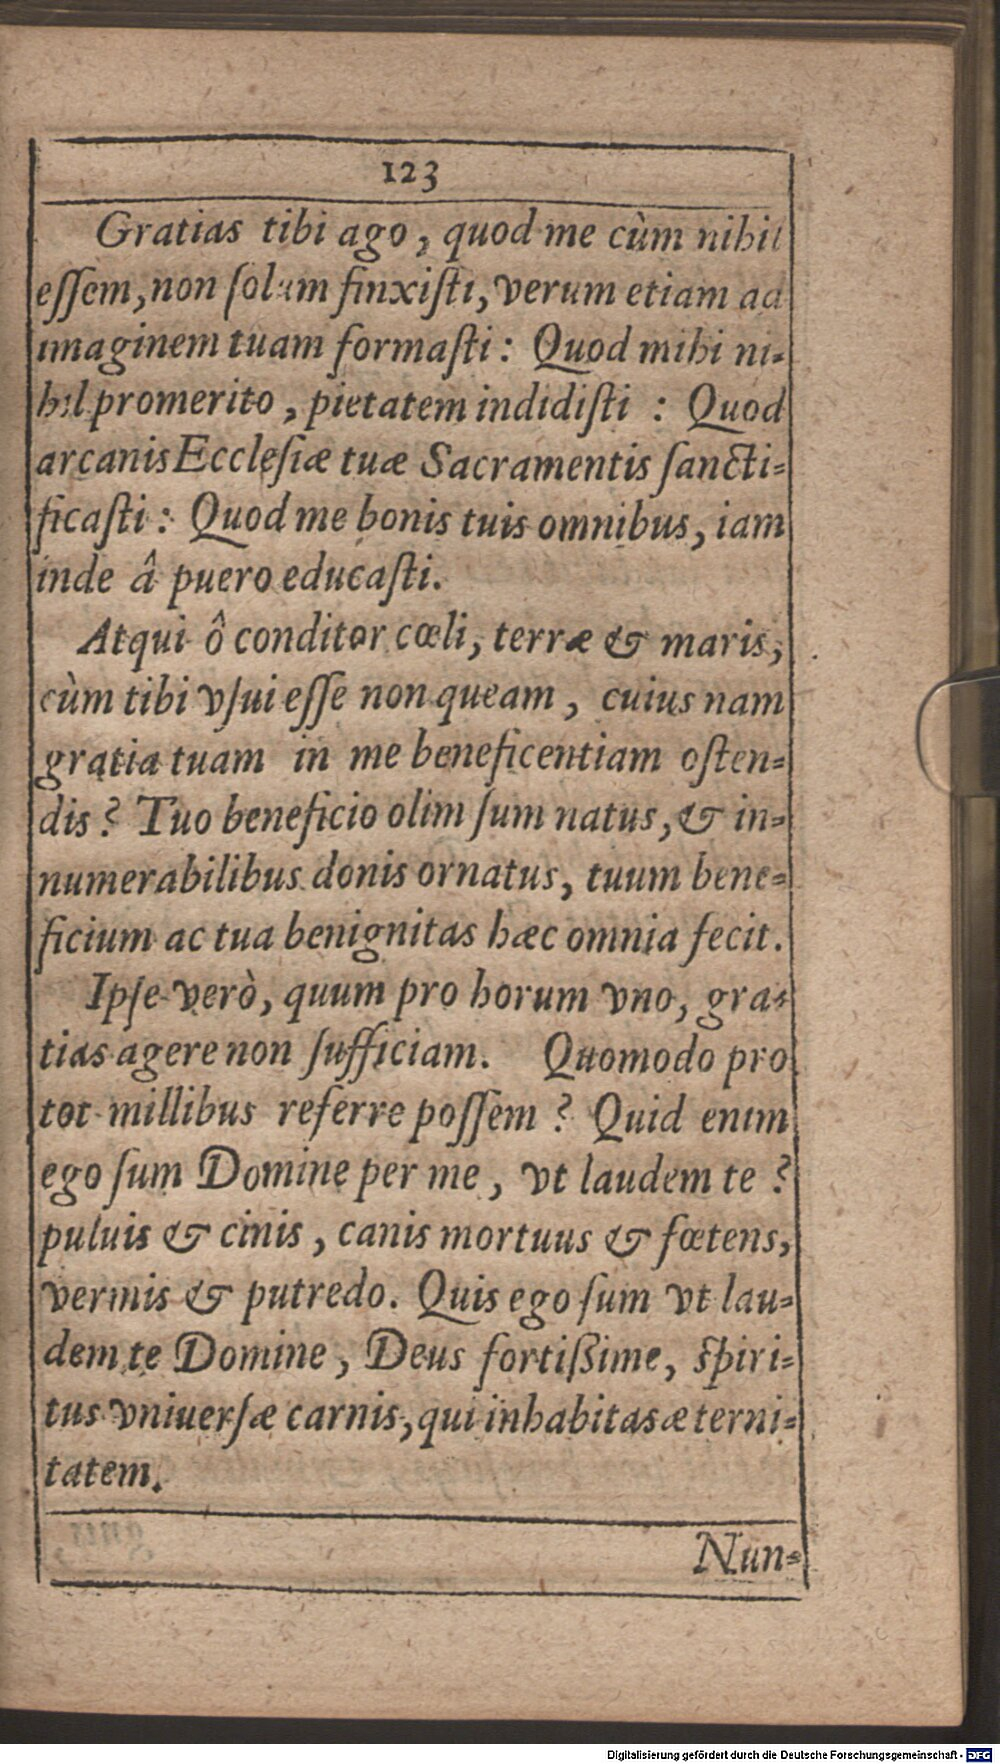 123
Gratias tibi ago, quod me cùm nihil
eſſem, non ſolum finxiſti, verum etiam ad
imaginem tuam formaſti: Quod mihi ni-
hil promerito, pietatem indidiſti : Quod
arcanis Eccleſiæ tuæ Sacramentis ſancti-
ficaſti: Quod me bonis tuis omnibus, iam
inde â puero educaſti.
Atqui ô conditor cœli, terræ & maris,
cùm tibi vſui eſſe non queam, cuius nam
gratia tuam in me beneficentiam oſten-
dis? Tuo beneficio olim ſum natus, & in-
numerabilibus donis ornatus, tuum bene-
ficium ac tua benignitas hæc omnia fecit.
Ipſe verò, quum pro horum vno, gra-
tias agere non ſufficiam. Quomodo pro
tot millibus referre poſſem? Quid enim
ego ſum Domine per me, vt laudem te?
puluis & cinis, canis mortuus & fœtens,
vermis & putredo. Quis ego ſum vt lau-
dem te Domine, Deus fortiſſime, ſpiri-
tus vniuerſæ carnis, qui inhabitas æterni-
tatem.
Nun-
Digitalisierung gefördert durch die Deutsche Forschungsgemeinschaft - DFG